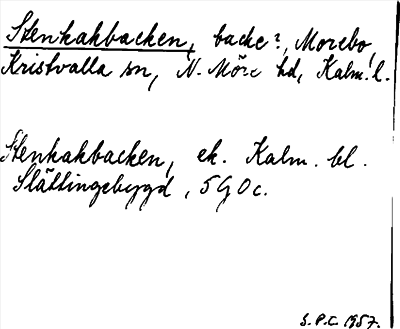 Stenkakbacken, backe?, Morebo,
Kristvalla sn, N. Möre hd, Kalm. l.
Stenkakbacken, ek. Kalm. bl.
Slättingebygd, 5G0c.
S.P.C. 1957.